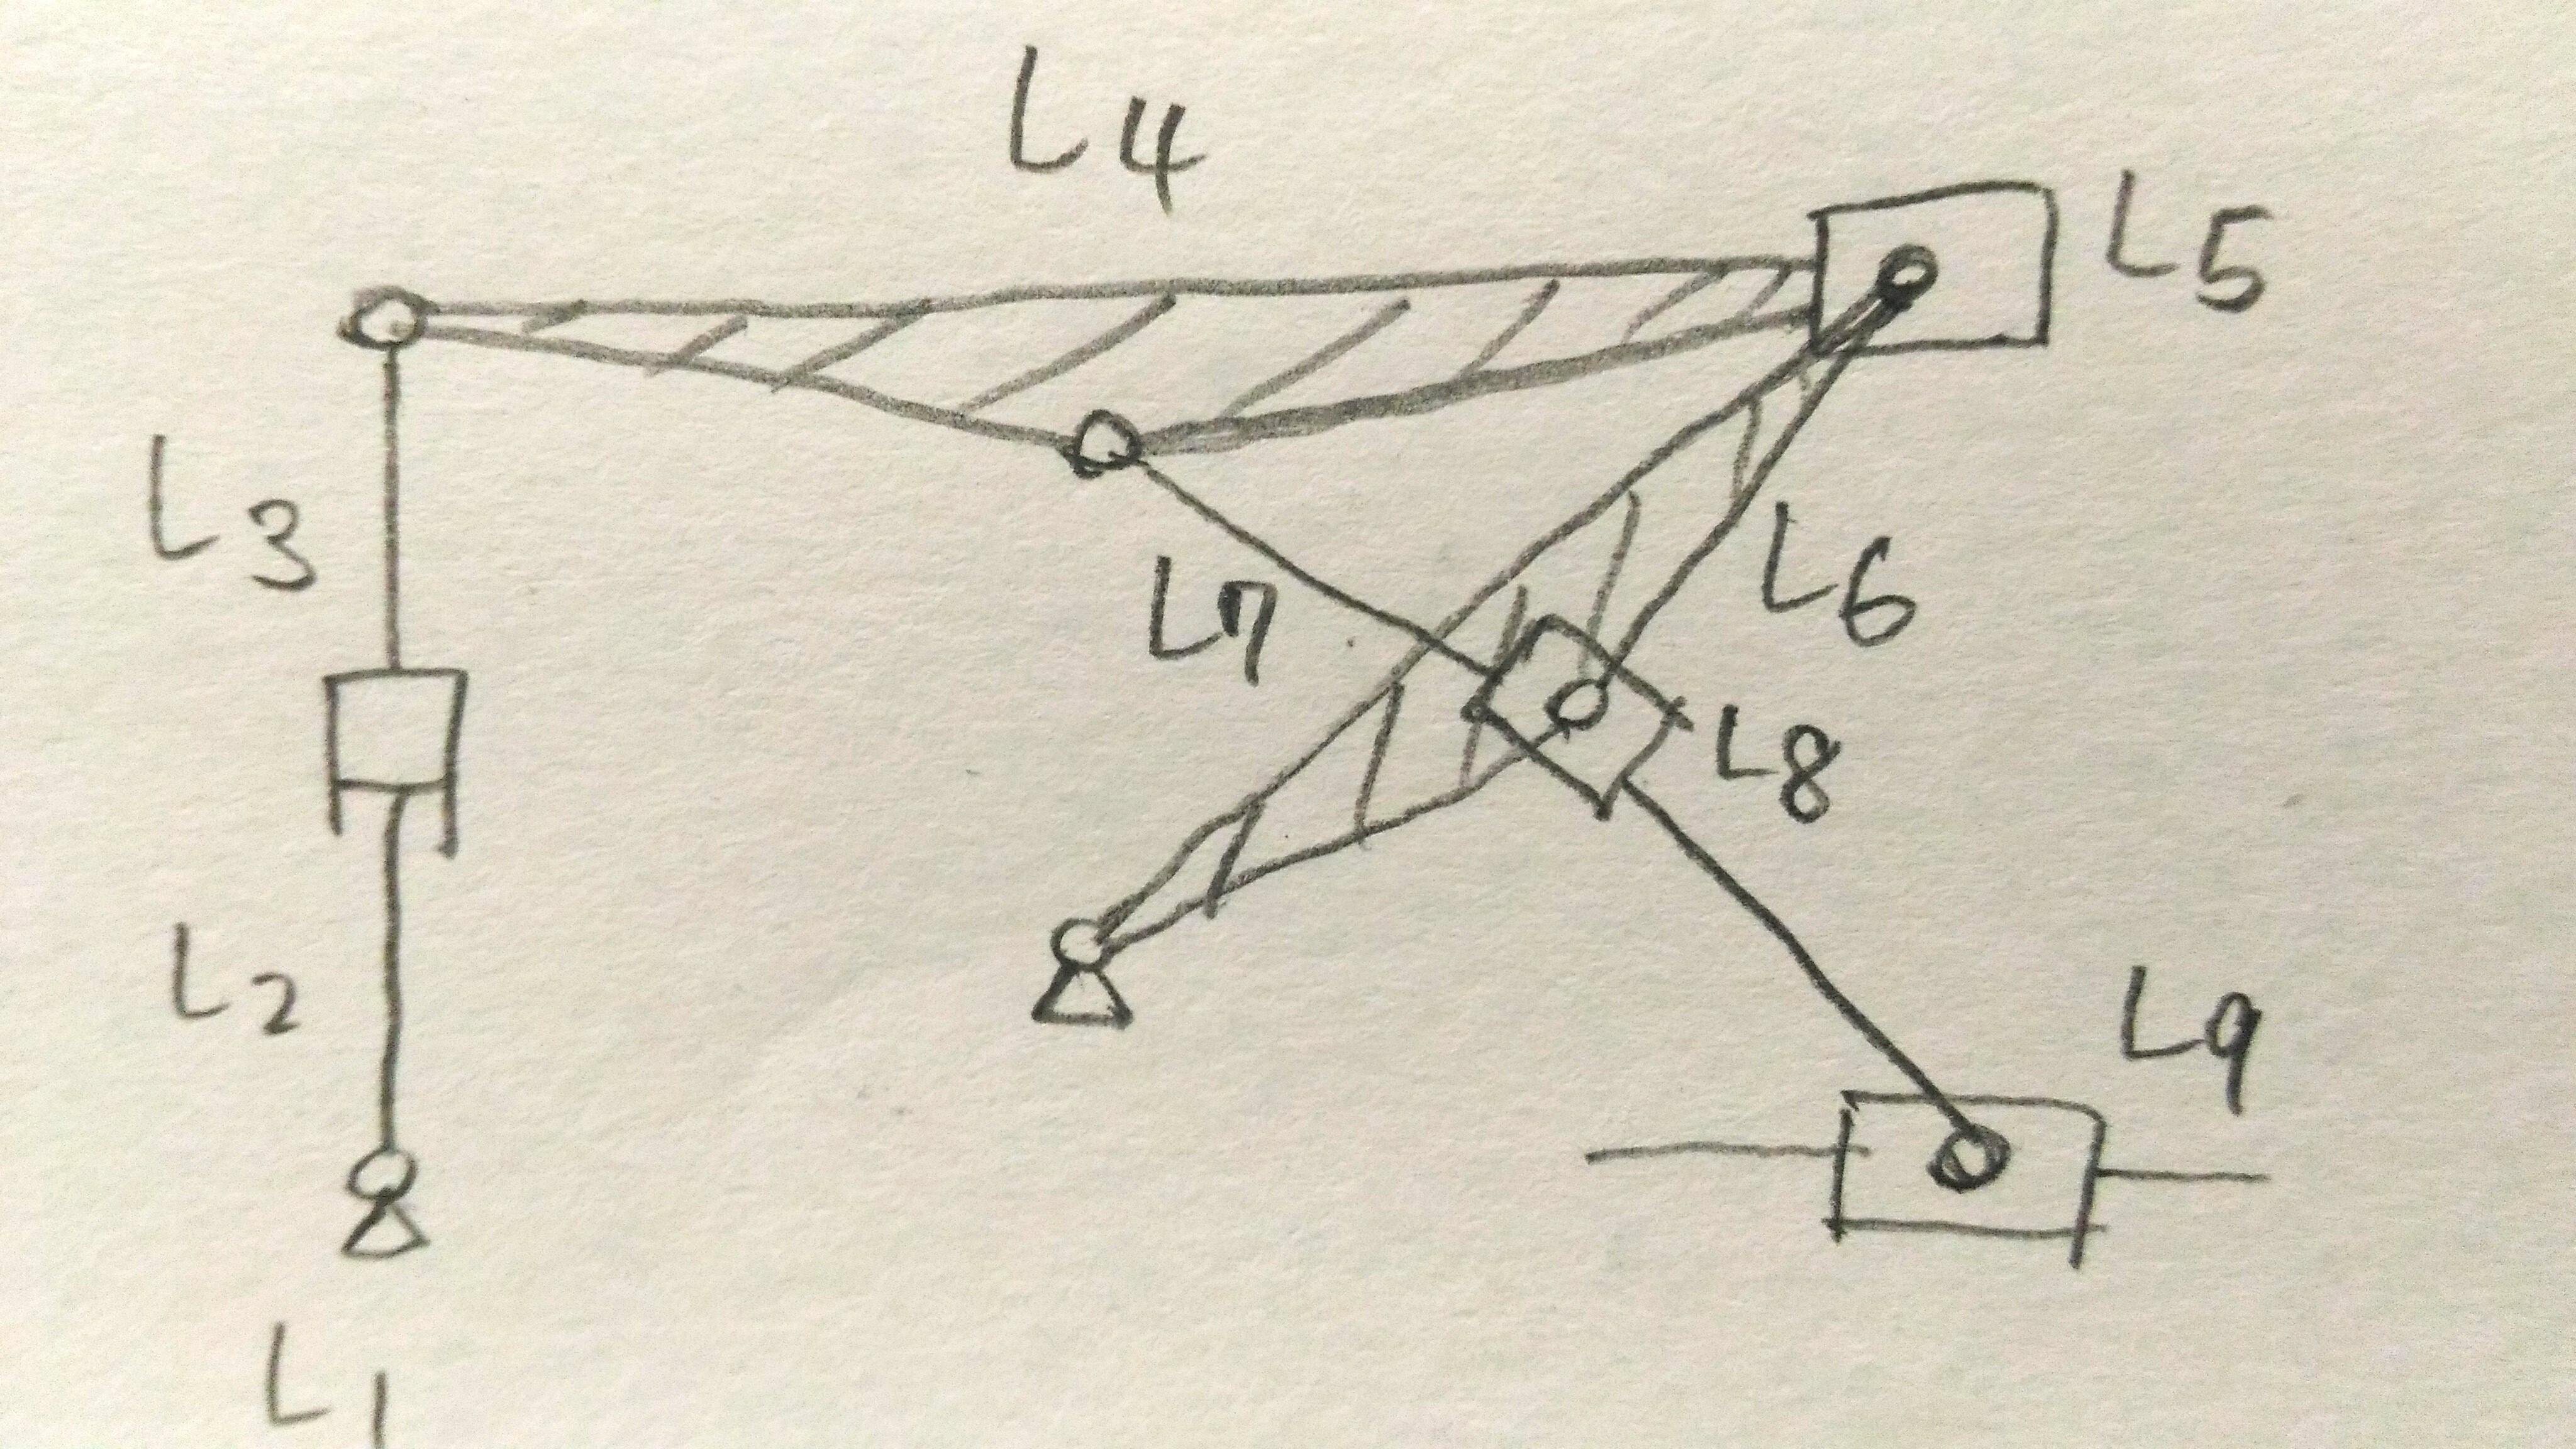 L4
L5
L3
L6
L7
L8
L2
L9
L1